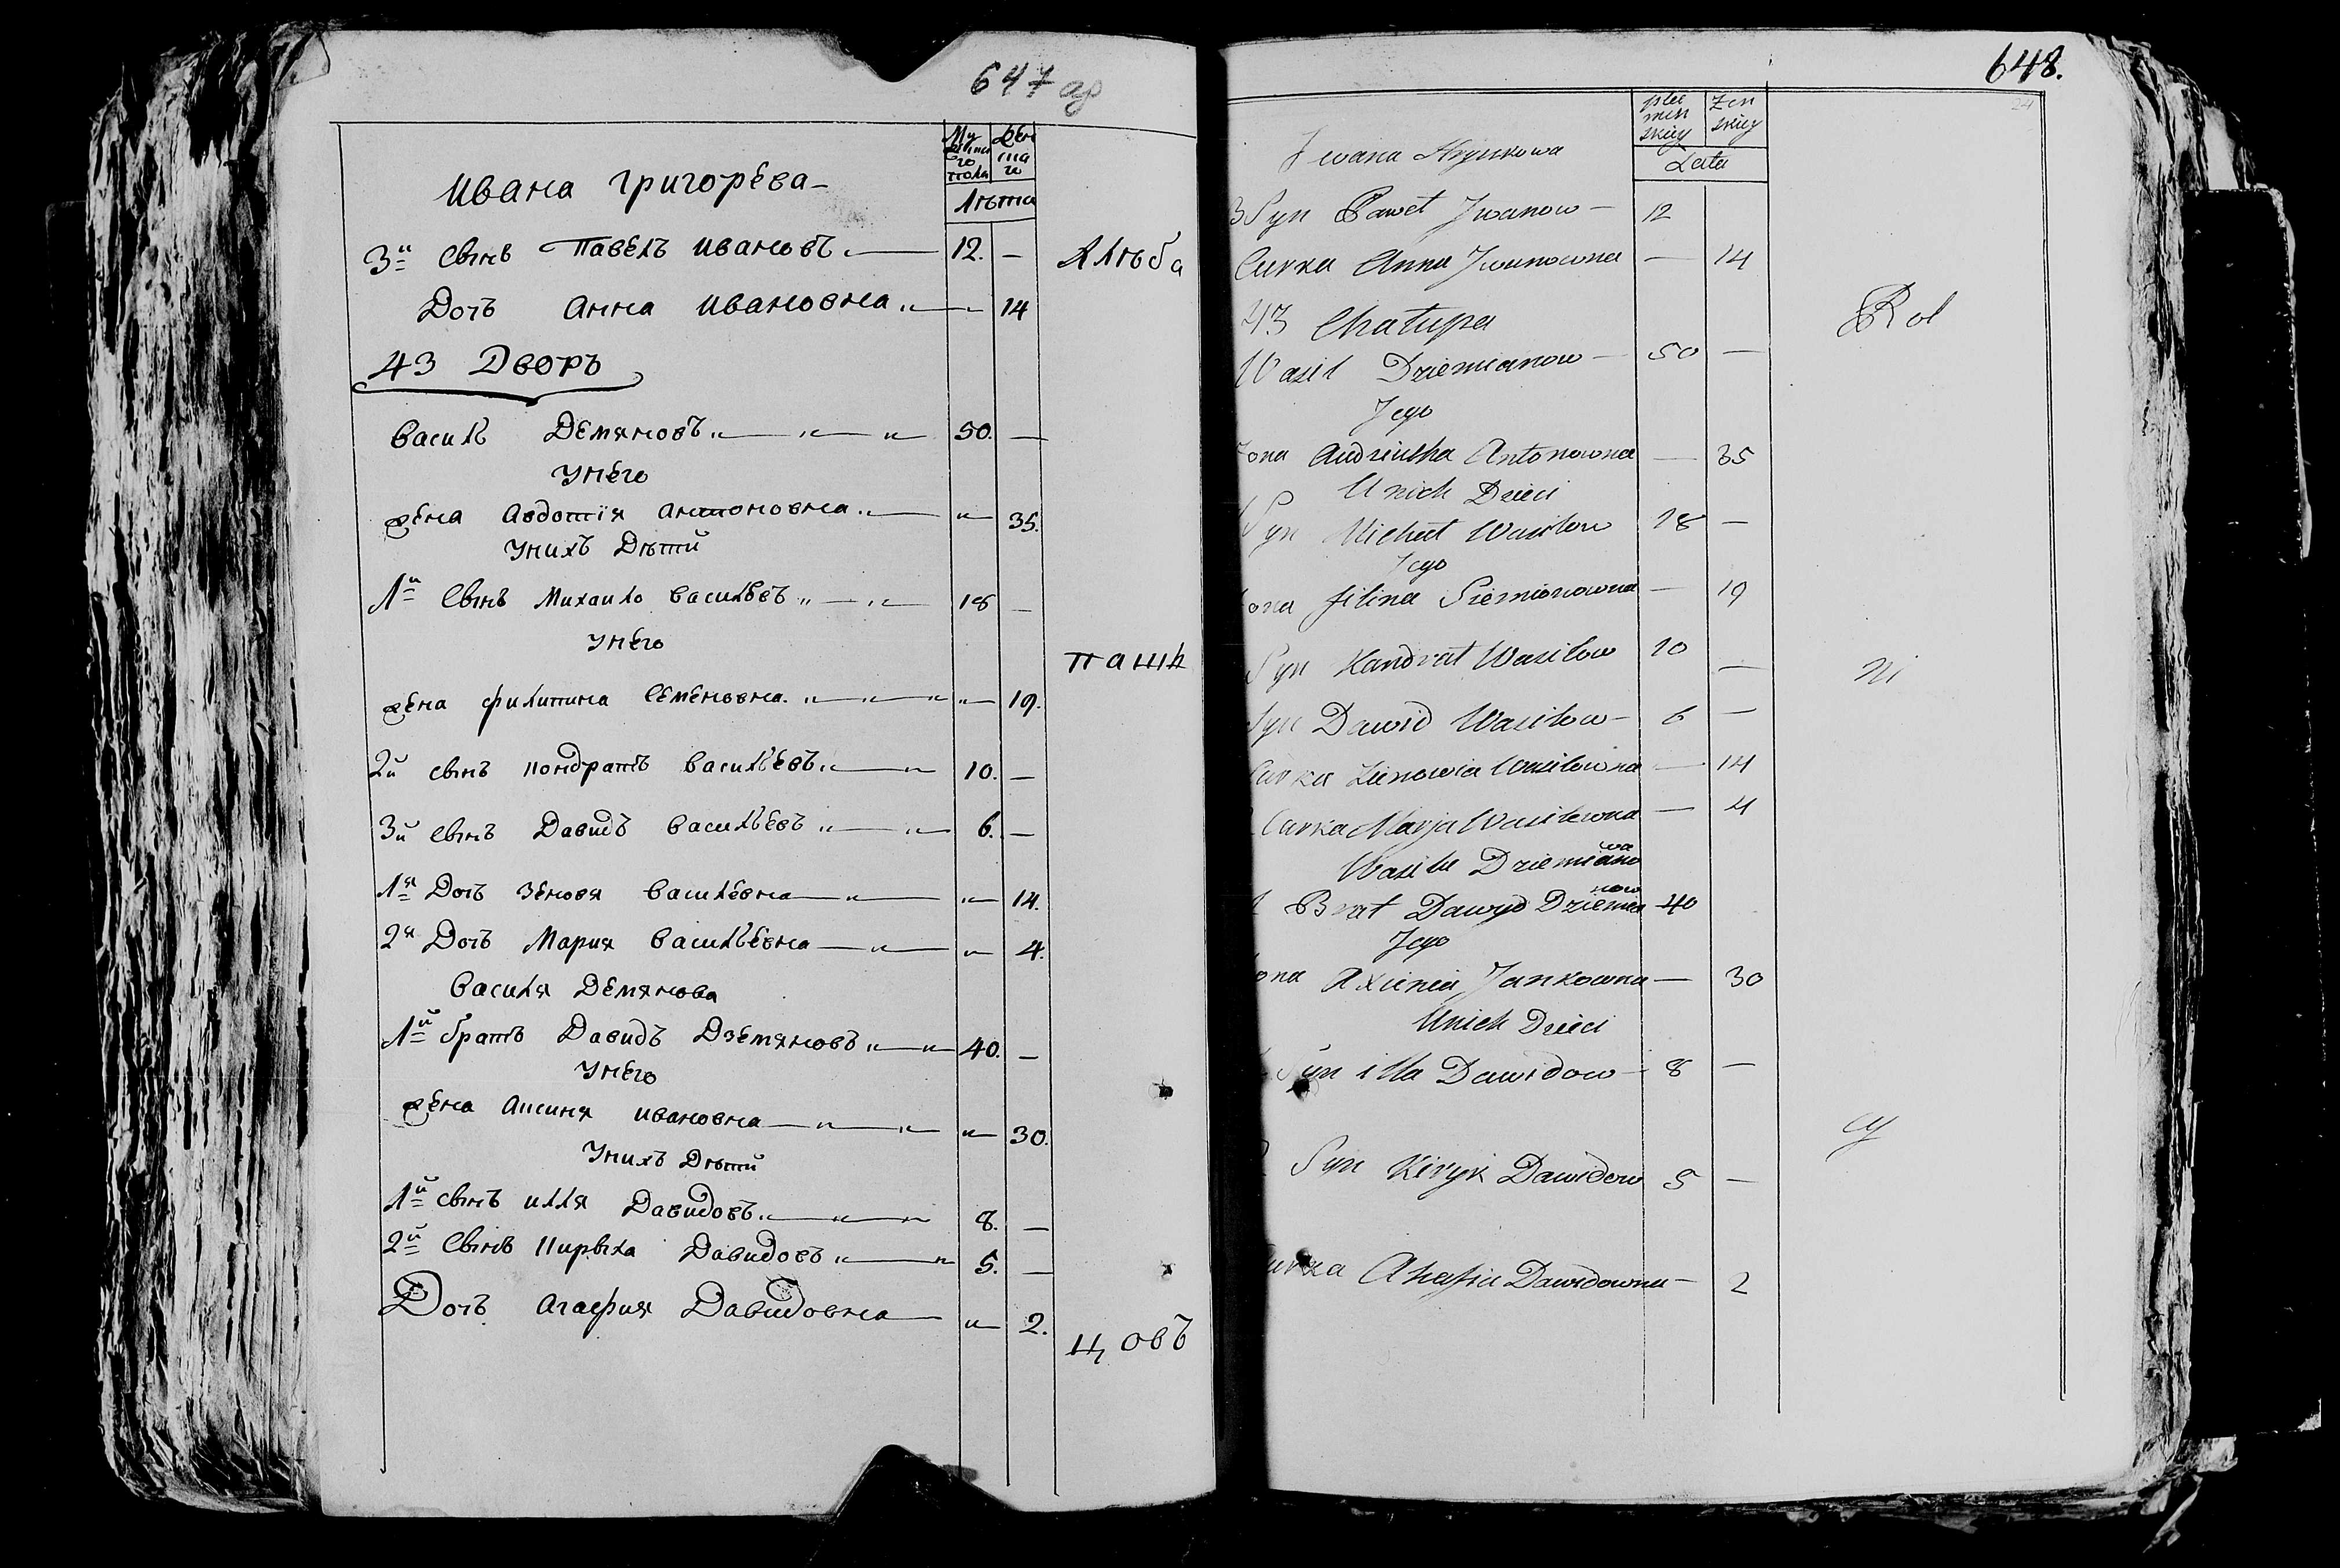 647 об
Мужскаго пола
Женскаго
Лѣта
Ивана Григорьева
3й сынъ Павелъ Ивановъ 12. —
Хлѣба
Дочь Анна Ивановна — 14
43 Дворъ
Василь Демяновъ 50. —
У него
жена Авдотія Антоновна — 35.
У нихъ Дѣти
1й сынъ Михаило Васильевъ 18 —
У него
пашн
жена Филипина Семеновна — 19.
2й сынъ Кондратъ Васильевъ 10. —
3й сынъ Давидъ Васильевъ 6. —
1я Дочь Зеновя Василевна — 14.
2я Дочь Мария Васильевна — 4.
Василя Демянова
1й братъ Давидъ Дземяновъ 40. —
У него
жена Аксиня Ивановна — 30.
У нихъ Дѣти
1й сынъ Илля Давидовъ 8. —
2й сынъ Кирыла Давидовъ 5. —
Дочь Агафия Давидовна — 2.
цовъ
648.
24
płci męskiej
żeńskiej
Lata
Iwana Hrynkowa
3 Syn Paweł Iwanow — 12
Curka Anna Iwanowna — 14
43 Chałupa
Rol
Wasil Dziemianow — 50 —
Jego
żona Audziutha Antonowna — 35
U nich Dzieci
1 Syn Michał Wasilow 18 —
Jego
żona filina Siemionowna — 19
Syn Kandrat Wasilow 10 —
ni
Syn Dawid Wasilow — 6 —
Curka Zienowia Wasilowna — 14
Curka Marja Wasilewna — 4
Wasila Dziemianowa
1 Brat Dawyd Dziemianow 40
Jego
żona Axienia Jankowna — 30
U nich Dzieci
Syn illa Dawidow — 8 —
cy
2 Syn Kiryk Dawidow 5 —
Curka Ahafia Dawidowna — 2